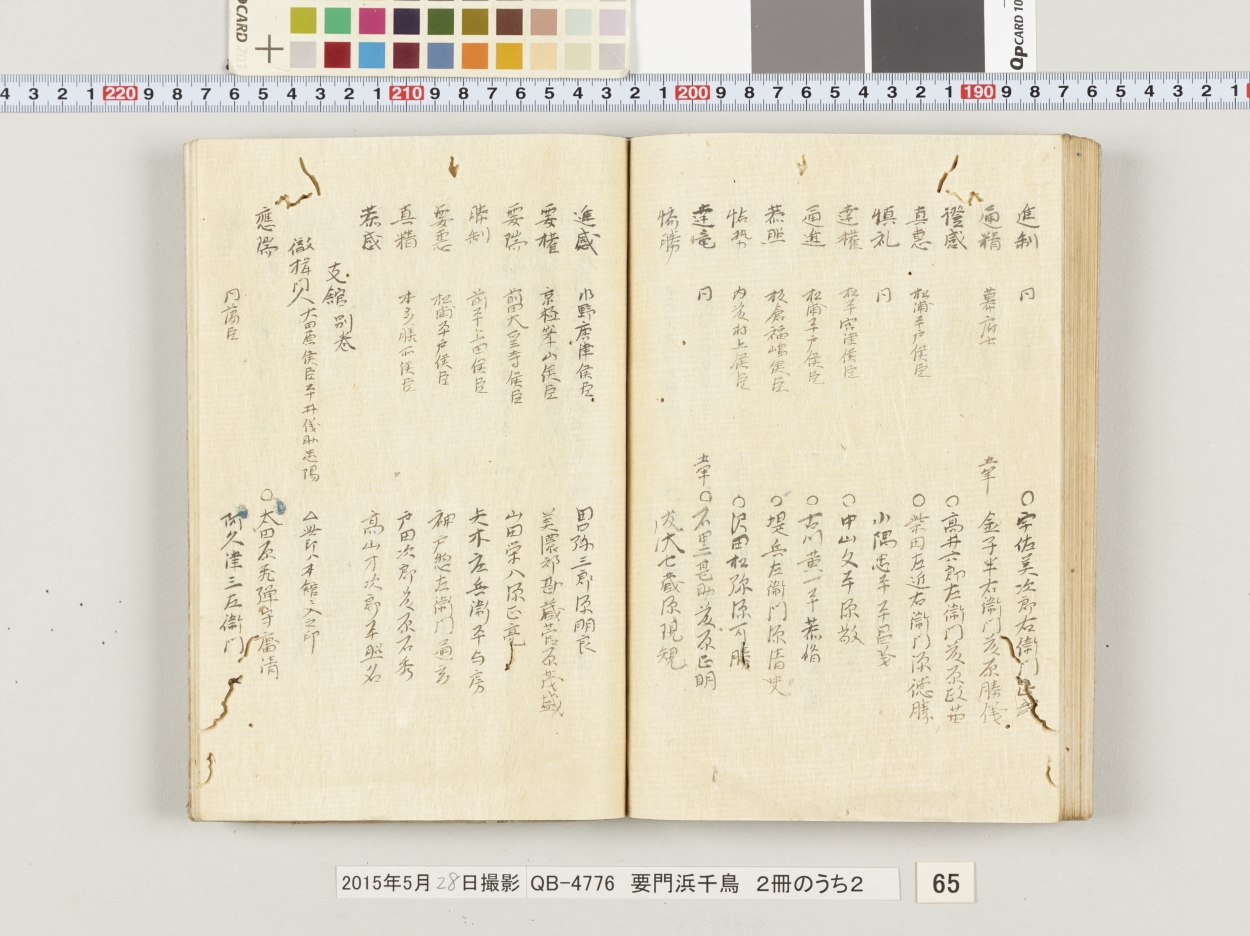 QPCARD 201
QPCARD 10
4 3 2 1 220 9 8 7 6 5 4 3 2 1 210 9 8 7 6 5 4 3 2 1 200 9 8 7 6 5 4 3 2 1 190 9 8 7 6 5 4 3 2 1
進制 同 ○宇佐美次郎右衛門
甬精 幕府士 金子半右衛門 原勝
證感 ○高井六郎左衛門 原政
真悪 松浦平戸侯臣 ○柴田左近右衛門源徳勝
慎礼 同 小隅忠平平昌
達權 松平宮津侯臣 ○中山文平源敬
甬進 松浦平戸侯臣 ○古川黄一平恭脩
恭照 板倉福嶋侯臣 ○堤兵左衛門源清
怗勢 内 村上侯臣 ○沢田松弥源可勝
達竜 同 ○石黒甚助 原正明
勝 七蔵源規
進感 小野唐津侯臣 田口弥三郎源朋良
要權 京極峯山侯臣 美濃部勘蔵菅原茂盛
要瑞 前田大聖寺侯臣 山田栄八源正亮
勝制 前平上田侯臣 矢木庄兵衛平与房
要悪 松浦平戸侯臣 神戸惣左衛門
真精 本多膳所侯臣 戸田次郎 原石秀
恭感 高山才次郎平照名
支館別巻
門人大田原侯臣平井 助忠陽 △無印八本館ニ入之印
應瑞 ○太田原飛弾守庸清
同藩臣 阿久津三左衛門
2015年5月28日撮影 QB-4776 要門浜千鳥 2冊のうち2
65